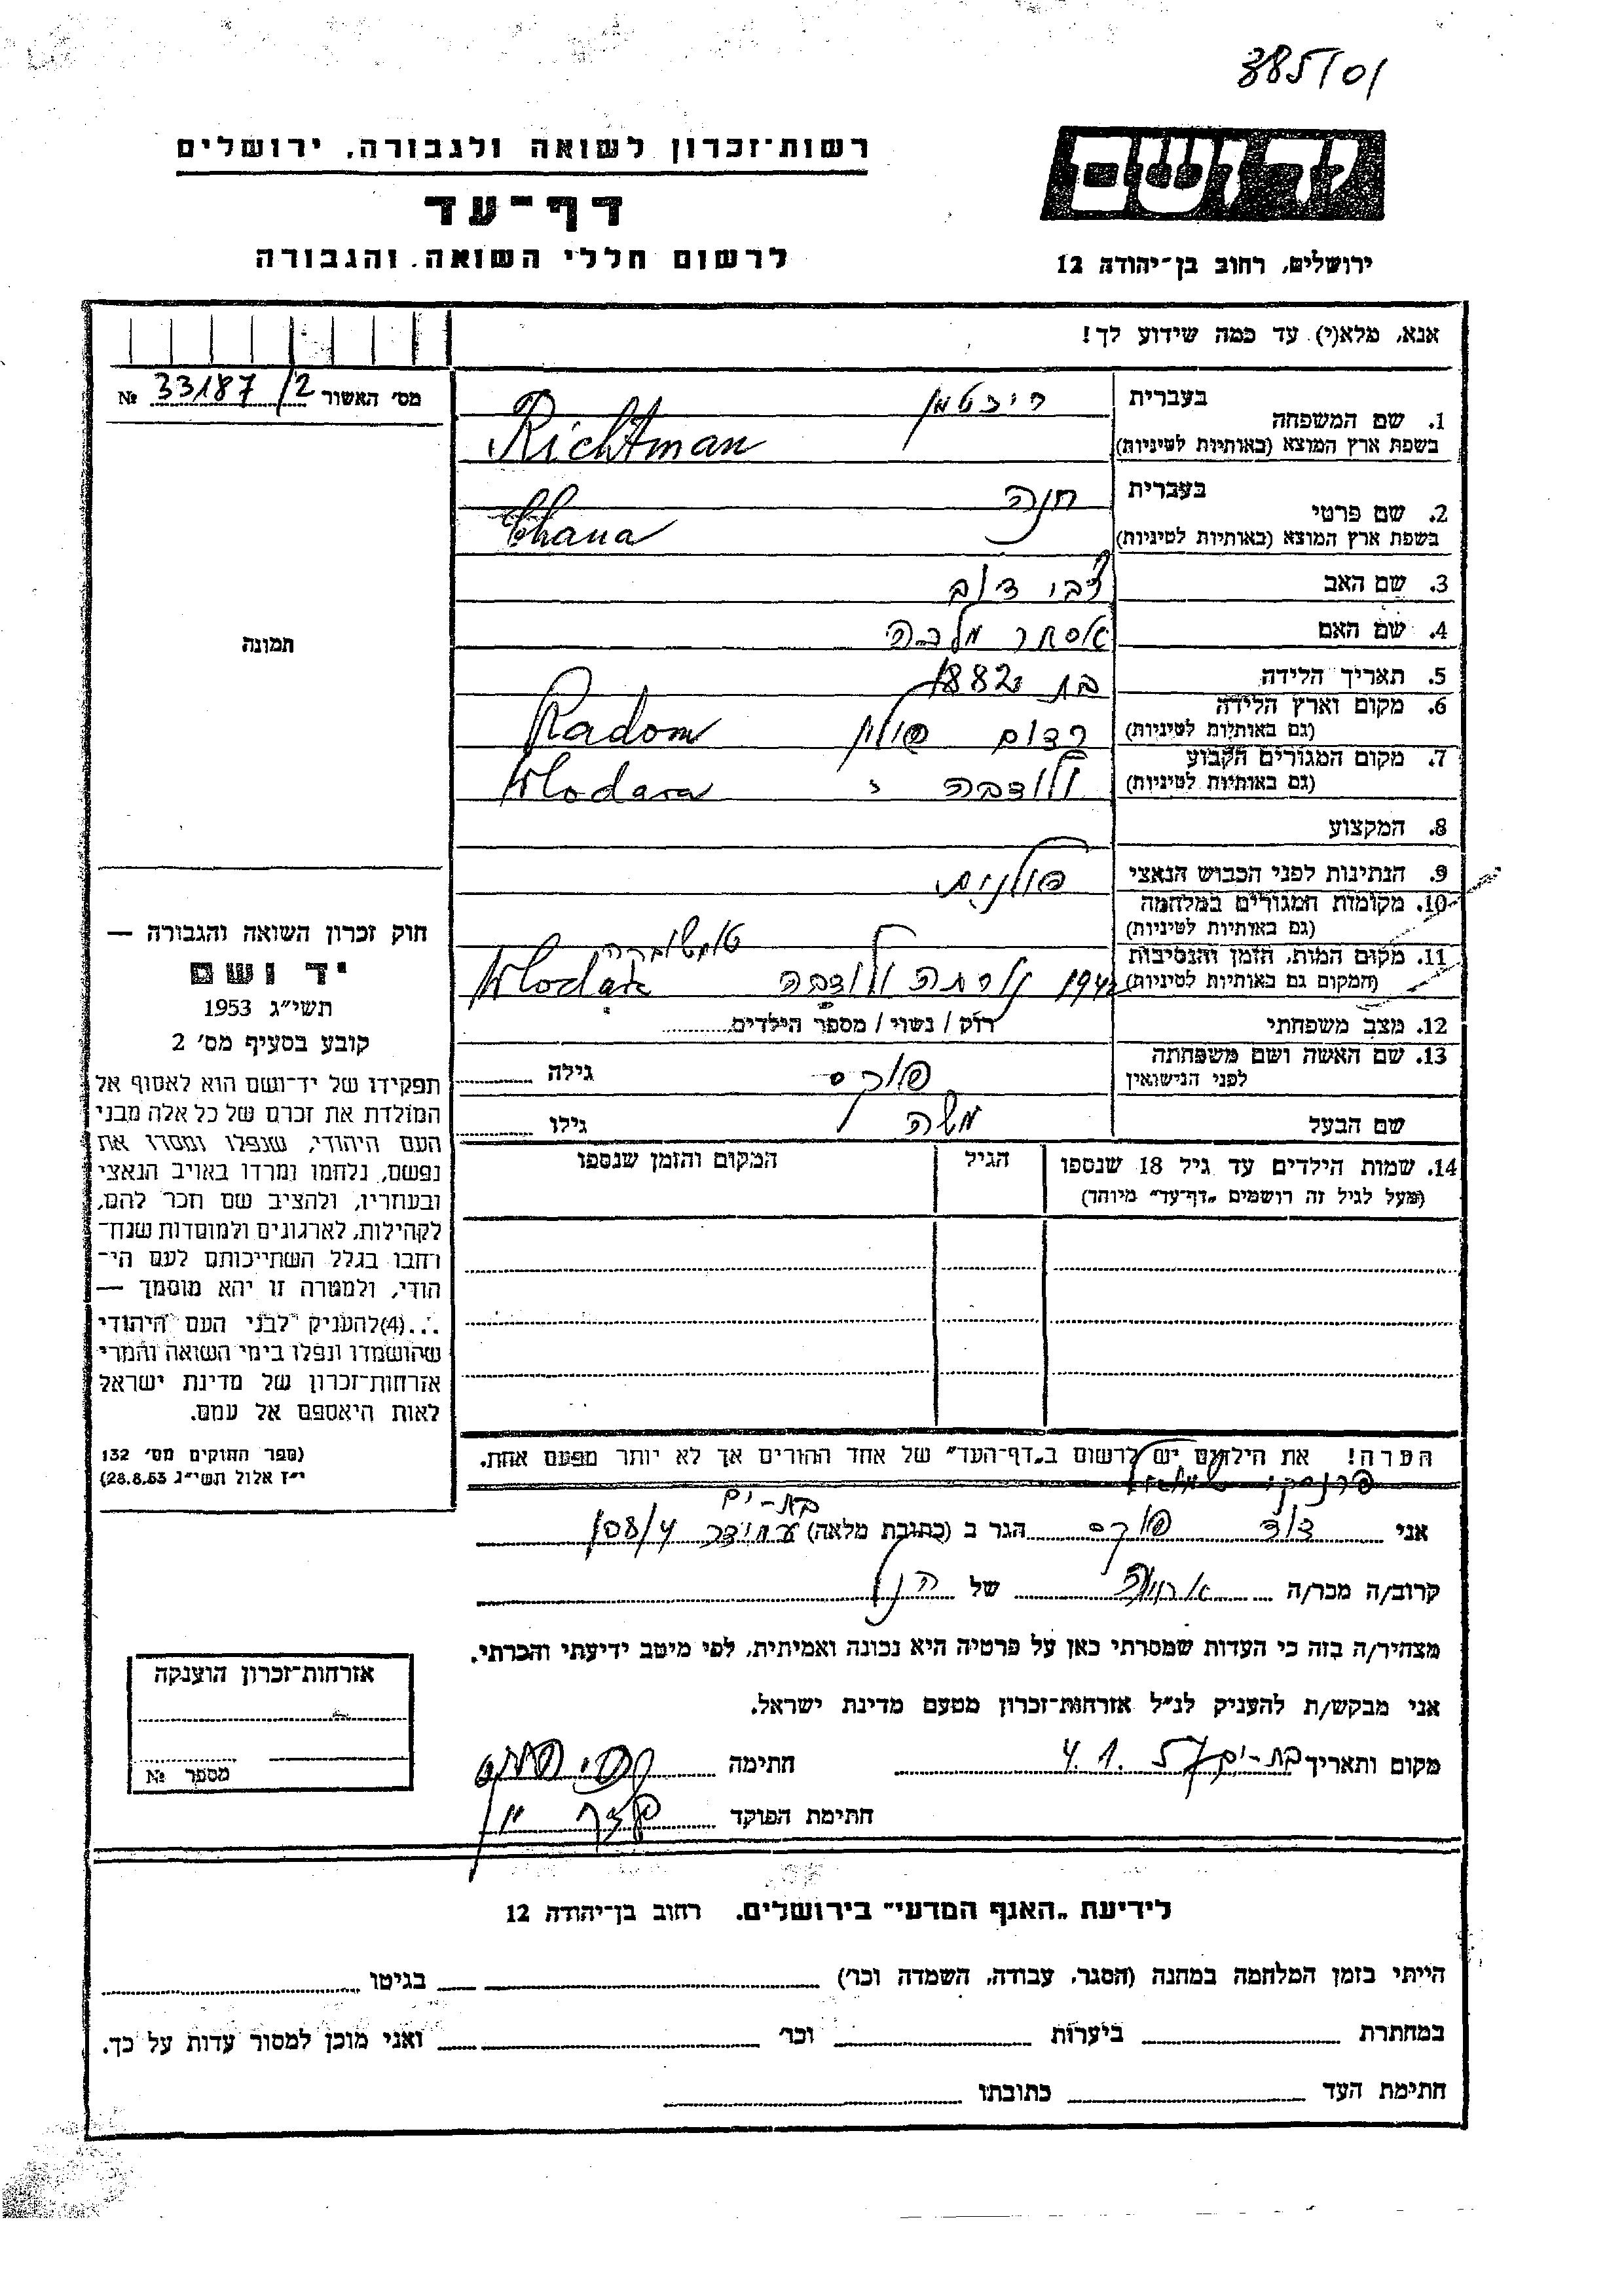 385/01
רשות־זכרון לשואה ולגבורה, ירושלים
דף־עד
לרשום חללי השואה והגבורה
יד ושם
ירושלים, רחוב בן־יהודה 12
אנא, מלא(י) עד כמה שידוע לך!
מס׳ האשור 33187/2 №
תמונה
1. שם המשפחה בעברית ריכטמן
בשפת ארץ המוצא (באותיות לטיניות) Richtman
2. שם פרטי בעברית חנה
בשפת ארץ המוצא (באותיות לטיניות) Chana
3. שם האב צבי דוב
4. שם האם אסתר מלכה
5. תאריך הלידה 1882
6. מקום וארץ הלידה
(גם באותיות לטיניות) רדום פולין Radom
7. מקום המגורים הקבוע
(גם באותיות לטיניות) ולודבה Wlodawa
8. המקצוע
9. הנתינות לפני הכבוש הנאצי פולנית
10. מקומות המגורים במלחמה
(גם באותיות לטיניות)
11. מקום המות, הזמן והנסיבות
(המקום גם באותיות לטיניות) 1942 ולודבה
12. מצב משפחתי רווק / נשוי / מספר הילדים
13. שם האשה ושם משפחתה
לפני הנישואין פוקס גילה
שם הבעל משה גילו
14. שמות הילדים עד גיל 18 שנספו הגיל המקום והזמן שנספו
(מעל לגיל זה רושמים „דף־עד״ מיוחד)
הערה! את הילדים יש לרשום ב„דף־העד״ של אחד ההורים אך לא יותר מפעם אחת.
חוק זכרון השואה והגבורה —
יד ושם
תשי״ג 1953
קובע בסעיף מס׳ 2
תפקידו של יד־ושם הוא לאסוף אל
המולדת את זכרם של כל אלה מבני
העם היהודי, שנפלו ומסרו את
נפשם, נלחמו ומרדו באויב הנאצי
ובעוזריו, ולהציב שם וזכר להם,
לקהילות, לארגונים ולמוסדות שנח־
רבו בגלל השתייכותם לעם הי־
הודי, ולמטרה זו יהא מוסמך —
...(4)להעניק לבני העם היהודי
שהושמדו ונפלו בימי השואה והמרי
אזרחות־זכרון של מדינת ישראל
לאות היאספם אל עמם.
(ספר החוקים מס׳ 132
י״ז אלול תשי״ג 28.8.53)
בת-ים
אני דוד פוקס הגר ב (כתובת מלאה) 108/4
קרוב/ה מכר/ה של הנ״ל
מצהיר/ה בזה כי העדות שמסרתי כאן על פרטיה היא נכונה ואמיתית, לפי מיטב ידיעתי והכרתי.
אני מבקש/ת להעניק לנ״ל אזרחות־זכרון מטעם מדינת ישראל.
מקום ותאריך בת-ים 4.1.57 חתימה
חתימת הפוקד
אזרחות־זכרון הוענקה
מספר №
לידיעת „האגף המדעי״ בירושלים, רחוב בן־יהודה 12
הייתי בזמן המלחמה במחנה (הסגר, עבודה, השמדה וכו׳) בגיטו
במחתרת ביערות וכו׳ ואני מוכן למסור עדות על כך.
חתימת העד כתובתו